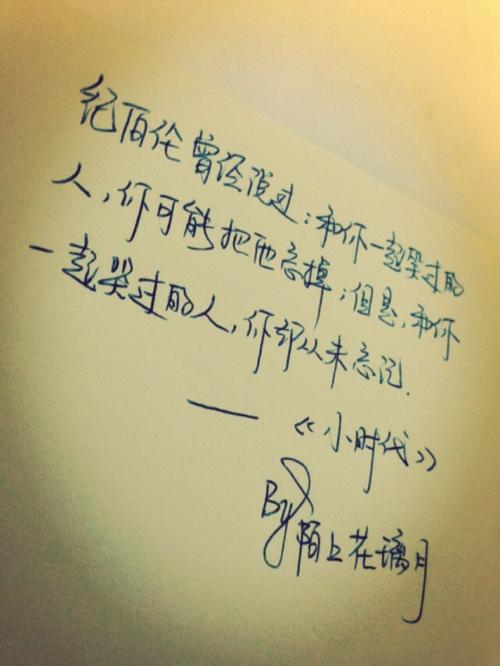 纪伯伦曾经说过：和你一起哭过的
人，你可能把他忘掉；但是，和你
一起哭过的人，你却从未忘记.
——《小时代》
By 陌上花璃月